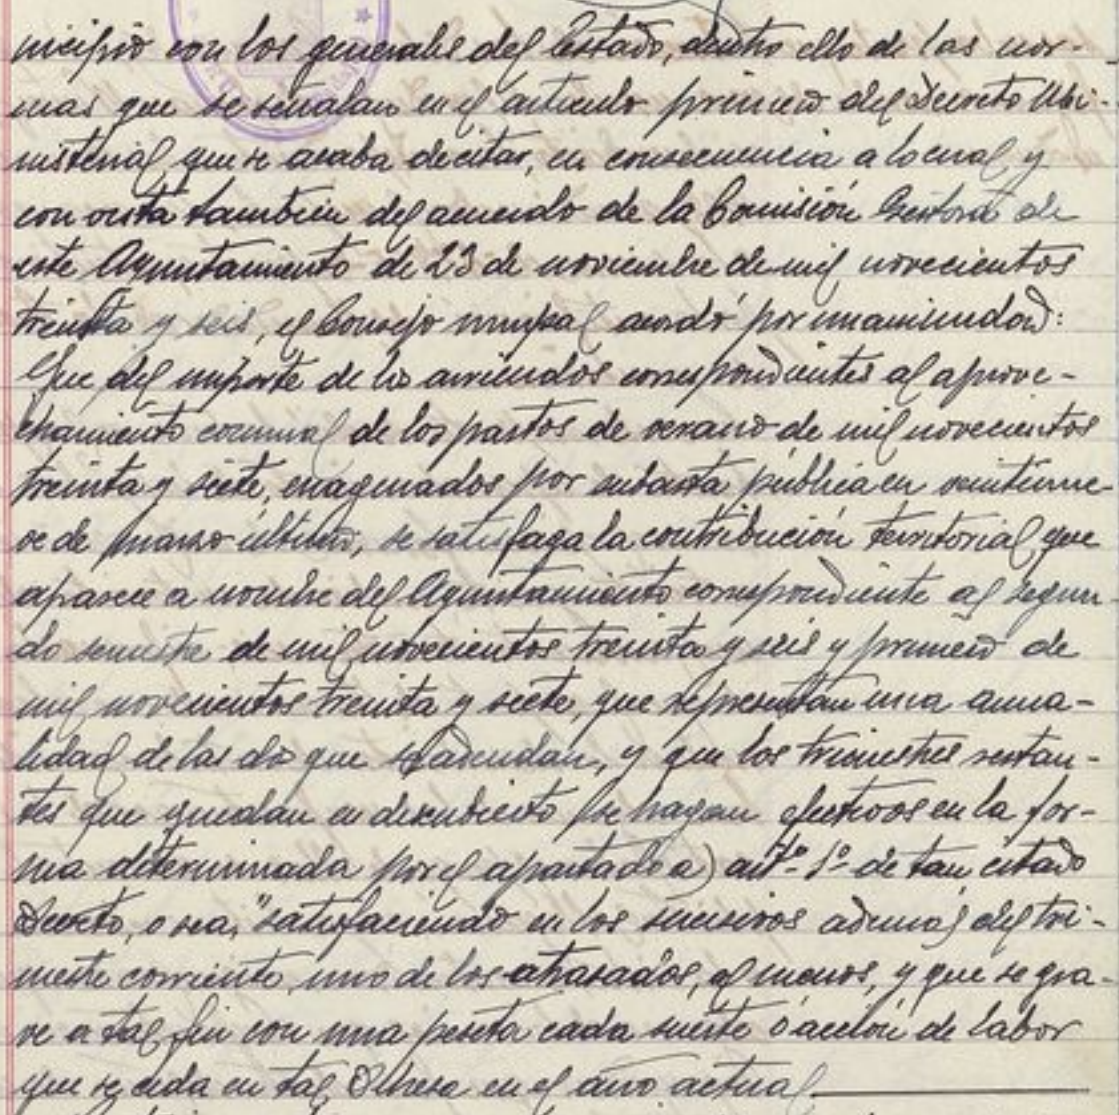 nicipio con los generales del Estado, dentro ello de las nor-
mas que se señalan en el articulo primero del Decreto Mi-
nisterial que se acaba de citar, en consecuencia a lo cual y
con vista tambien del acuerdo de la Comisión Gestora de
este Ayuntamiento de 23 de noviembre de mil novecientos
treinta y seis, el Consejo munpal acordó por unanimidad:
Que del importe de los arriendos correspondientes al aprove-
chamiento comunal de los pastos de verano de mil novecientos
treinta y siete, enagenados por subasta pública en veintinue-
ve de marzo último, se satisfaga la contribución territorial que
aparece a nombre del Ayuntamiento correspondiente al segun
do semestre de mil novecientos treinta y seis y primero de
mil novecientos treinta y siete, que representan una anua-
lidad de las dos que se adeudan, y que los trimestres restan-
tes que quedan en descubierto se hagan efectivos en la for-
ma determinada por el apartado a) artº. 1º de tan citado
Decreto, o sea, "satisfaciendo en los sucesivos además del tri-
mestre corriente, uno de los atrasados, al menos, y que se gra-
ve a tal fin con una peseta cada suerte ó acción de labor
que se ceda en tal Dehesa en el año actual.